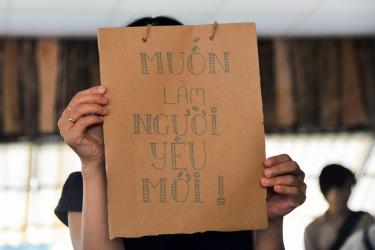 MUỐN
LÀM
NGƯỜI
YÊU
MỚI!